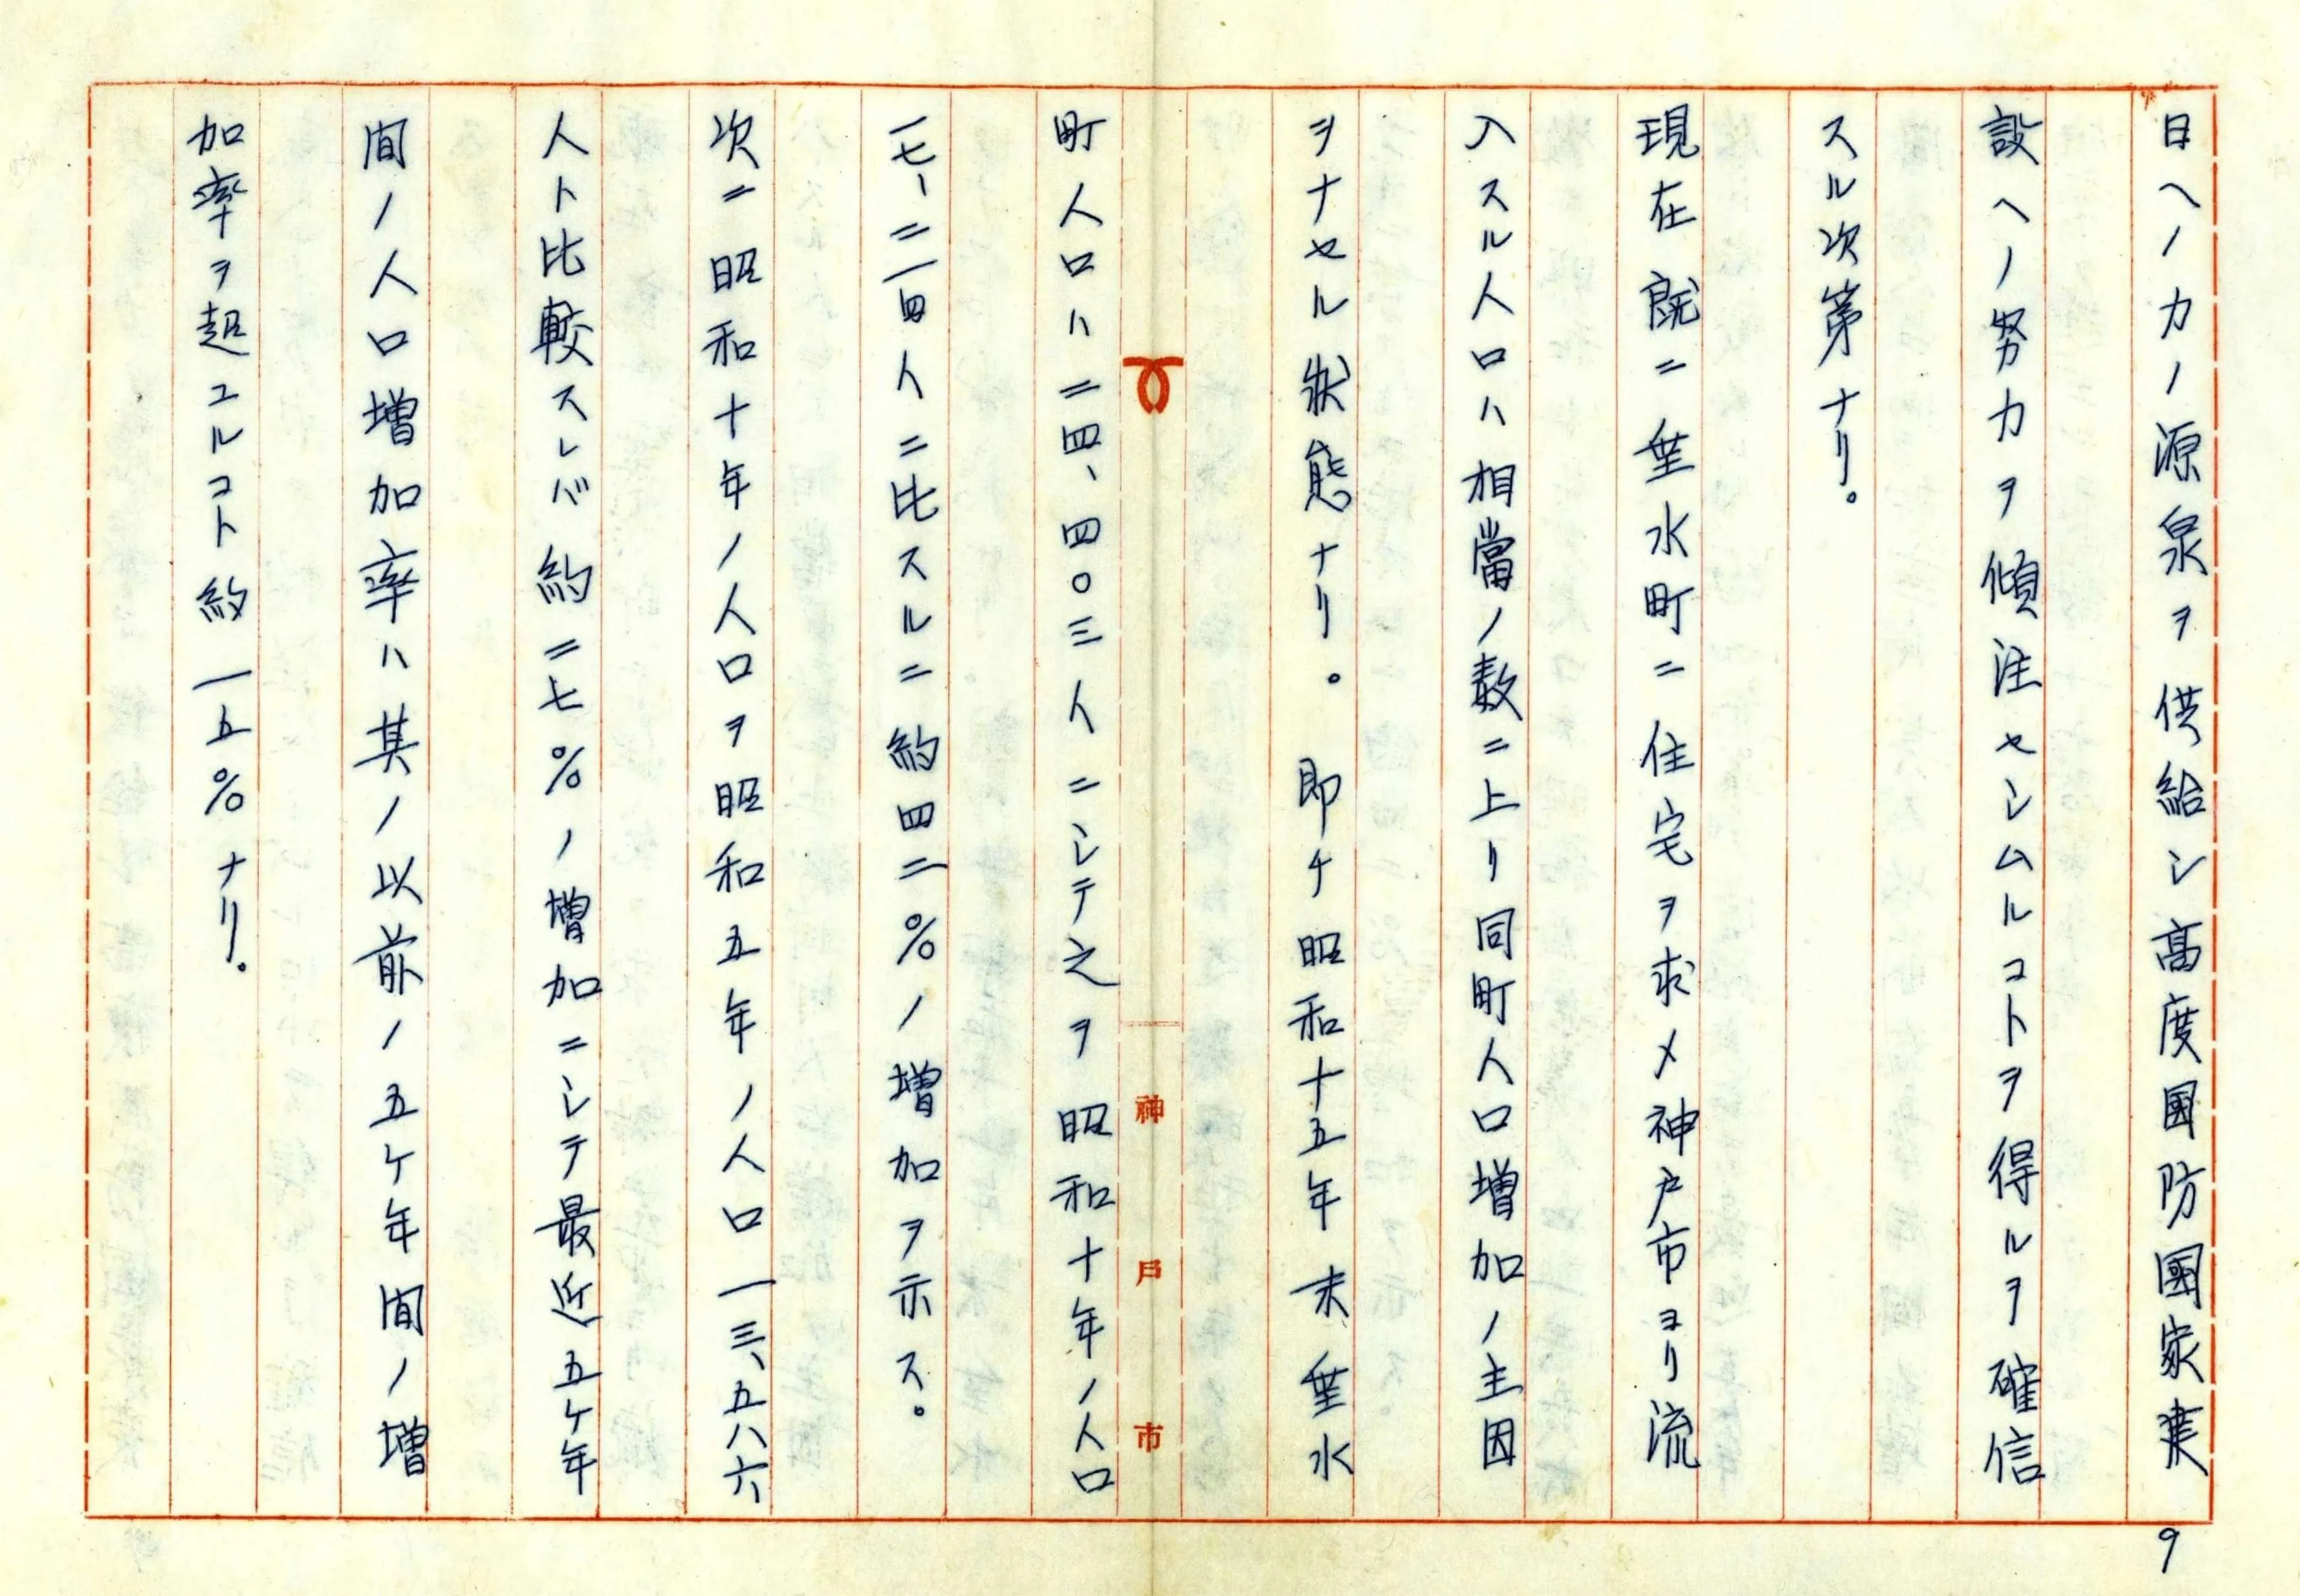 日ヘノカノ源泉ヲ供給シ高度国防國家建
設ヘノ努力ヲ傾注セシムルコトヲ得ルヲ確信
スル次第ナリ。
現在既ニ垂水町ニ住宅ヲ求メ神戸市ヨリ流
入スル人口ハ相當ノ数ニ上リ同町人口増加ノ主因
ヲナセル状態ナリ。即チ昭和十五年末垂水
町人口ハ二四、四〇三人ニシテ之ヲ昭和十年ノ人口
一七、二一四人ニ比スルニ約四二%ノ増加ヲ示ス。
次ニ昭和十年ノ人口ヲ昭和五年ノ人口一三、五八六
人ト比較スレバ約二七%ノ増加ニシテ最近五ケ年
間ノ人口増加率ハ其ノ以前ノ五ケ年間ノ増
加率ヲ超ユルコト約一五%ナリ。
神戸市
9